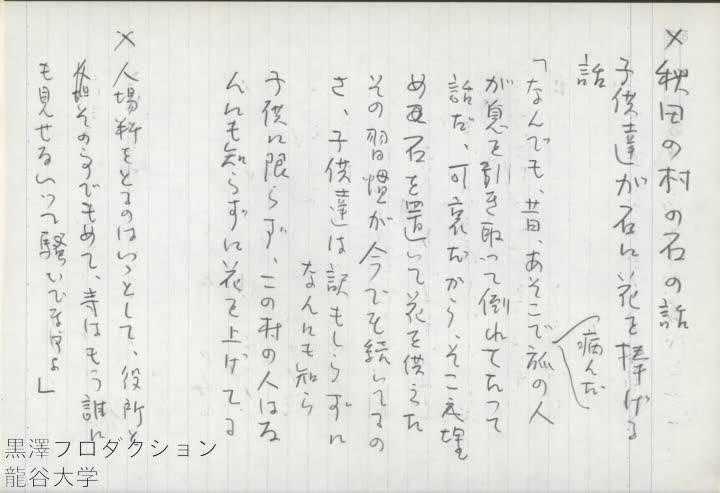 ×秋田の村の石の話
子供達が石に花を捧げる
話
「なんでも、昔、あそこで旅の人
病んだ
が息を引き取って倒れてたって
話だ、可哀だから、そこえ埋
め石を置いて花を供えた
その習慣が今でも続いてるの
さ、子供達は訳もしらずに
なんにも知ら
子供に限らず、この村の人はな
んにも知らずに花を上げてる
×入場料をとるのはいゝとして、役所と
そので もめて、寺はもう誰に
も見せないって騒いでますよ」
黒澤プロダクション
龍谷大学